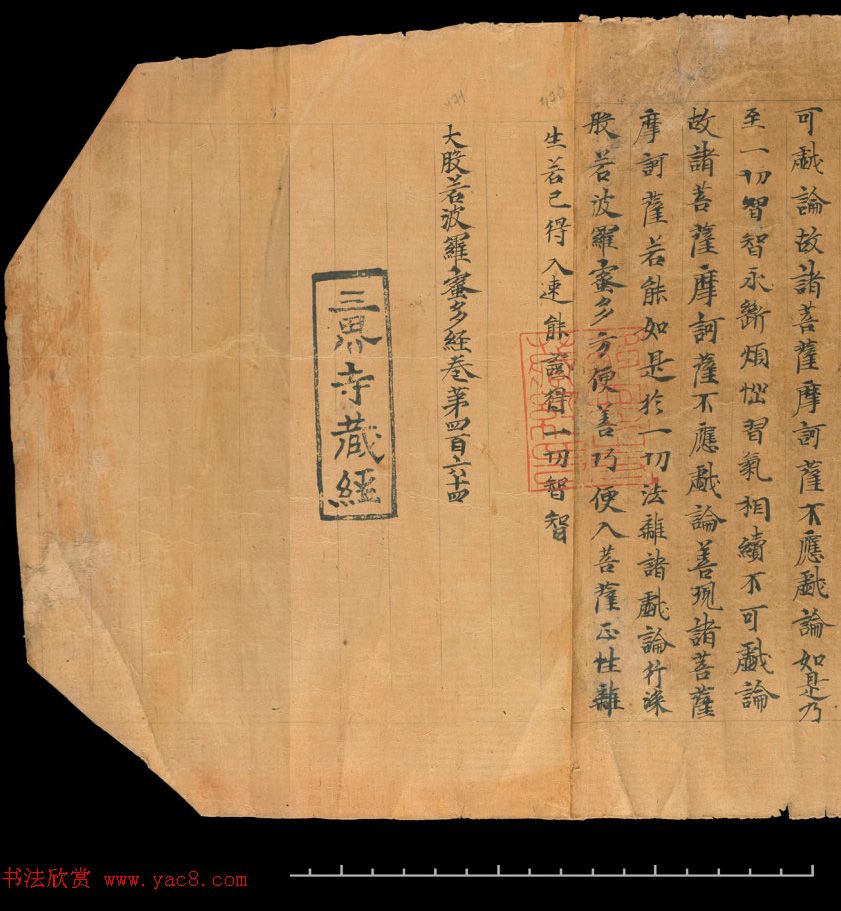 可戲論故諸菩薩摩訶薩不應戲論如是乃
至一切智智永斷煩惱習氣相續不可戲論
故諸菩薩摩訶薩不應戲論善現諸菩薩
摩訶薩若能如是於一切法離諸戲論行深
般若波羅蜜多方便善巧便入菩薩正性離
生若已得入速能證得一切智智
大般若波羅蜜多經卷第四百六十四
三界寺藏經
书法欣赏 www.yac8.com